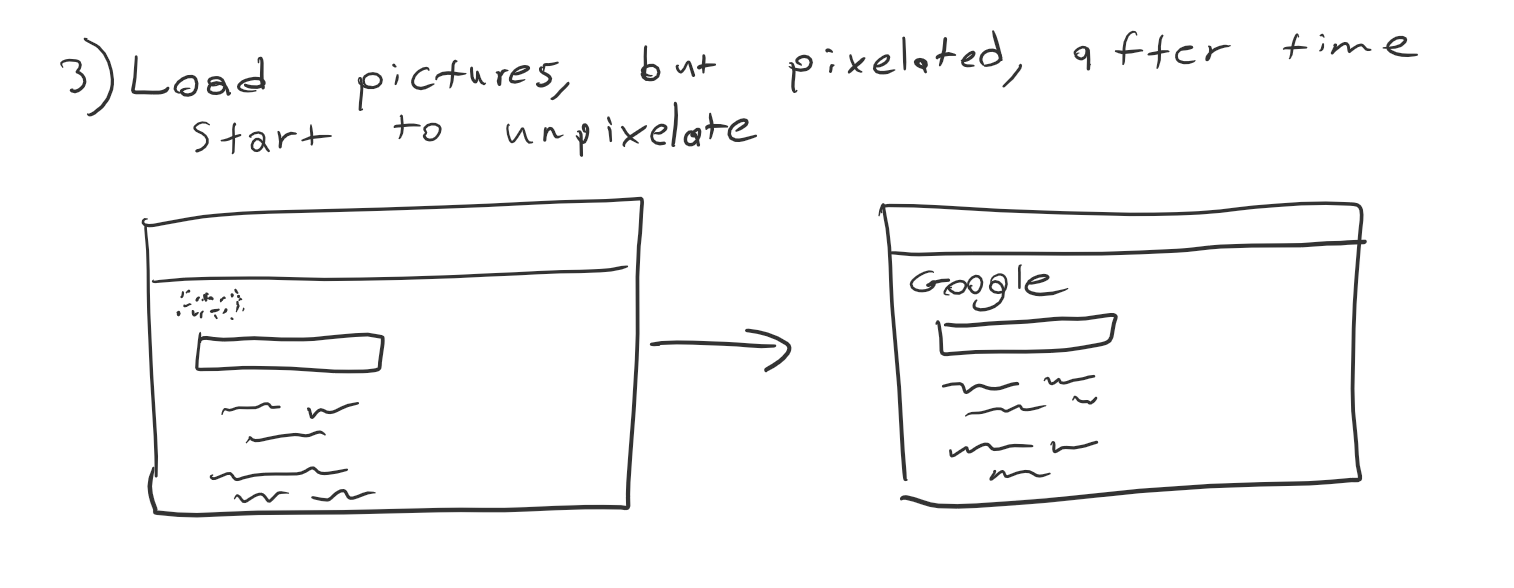 3) Load pictures, but pixelated, after time
start to unpixelate
Google